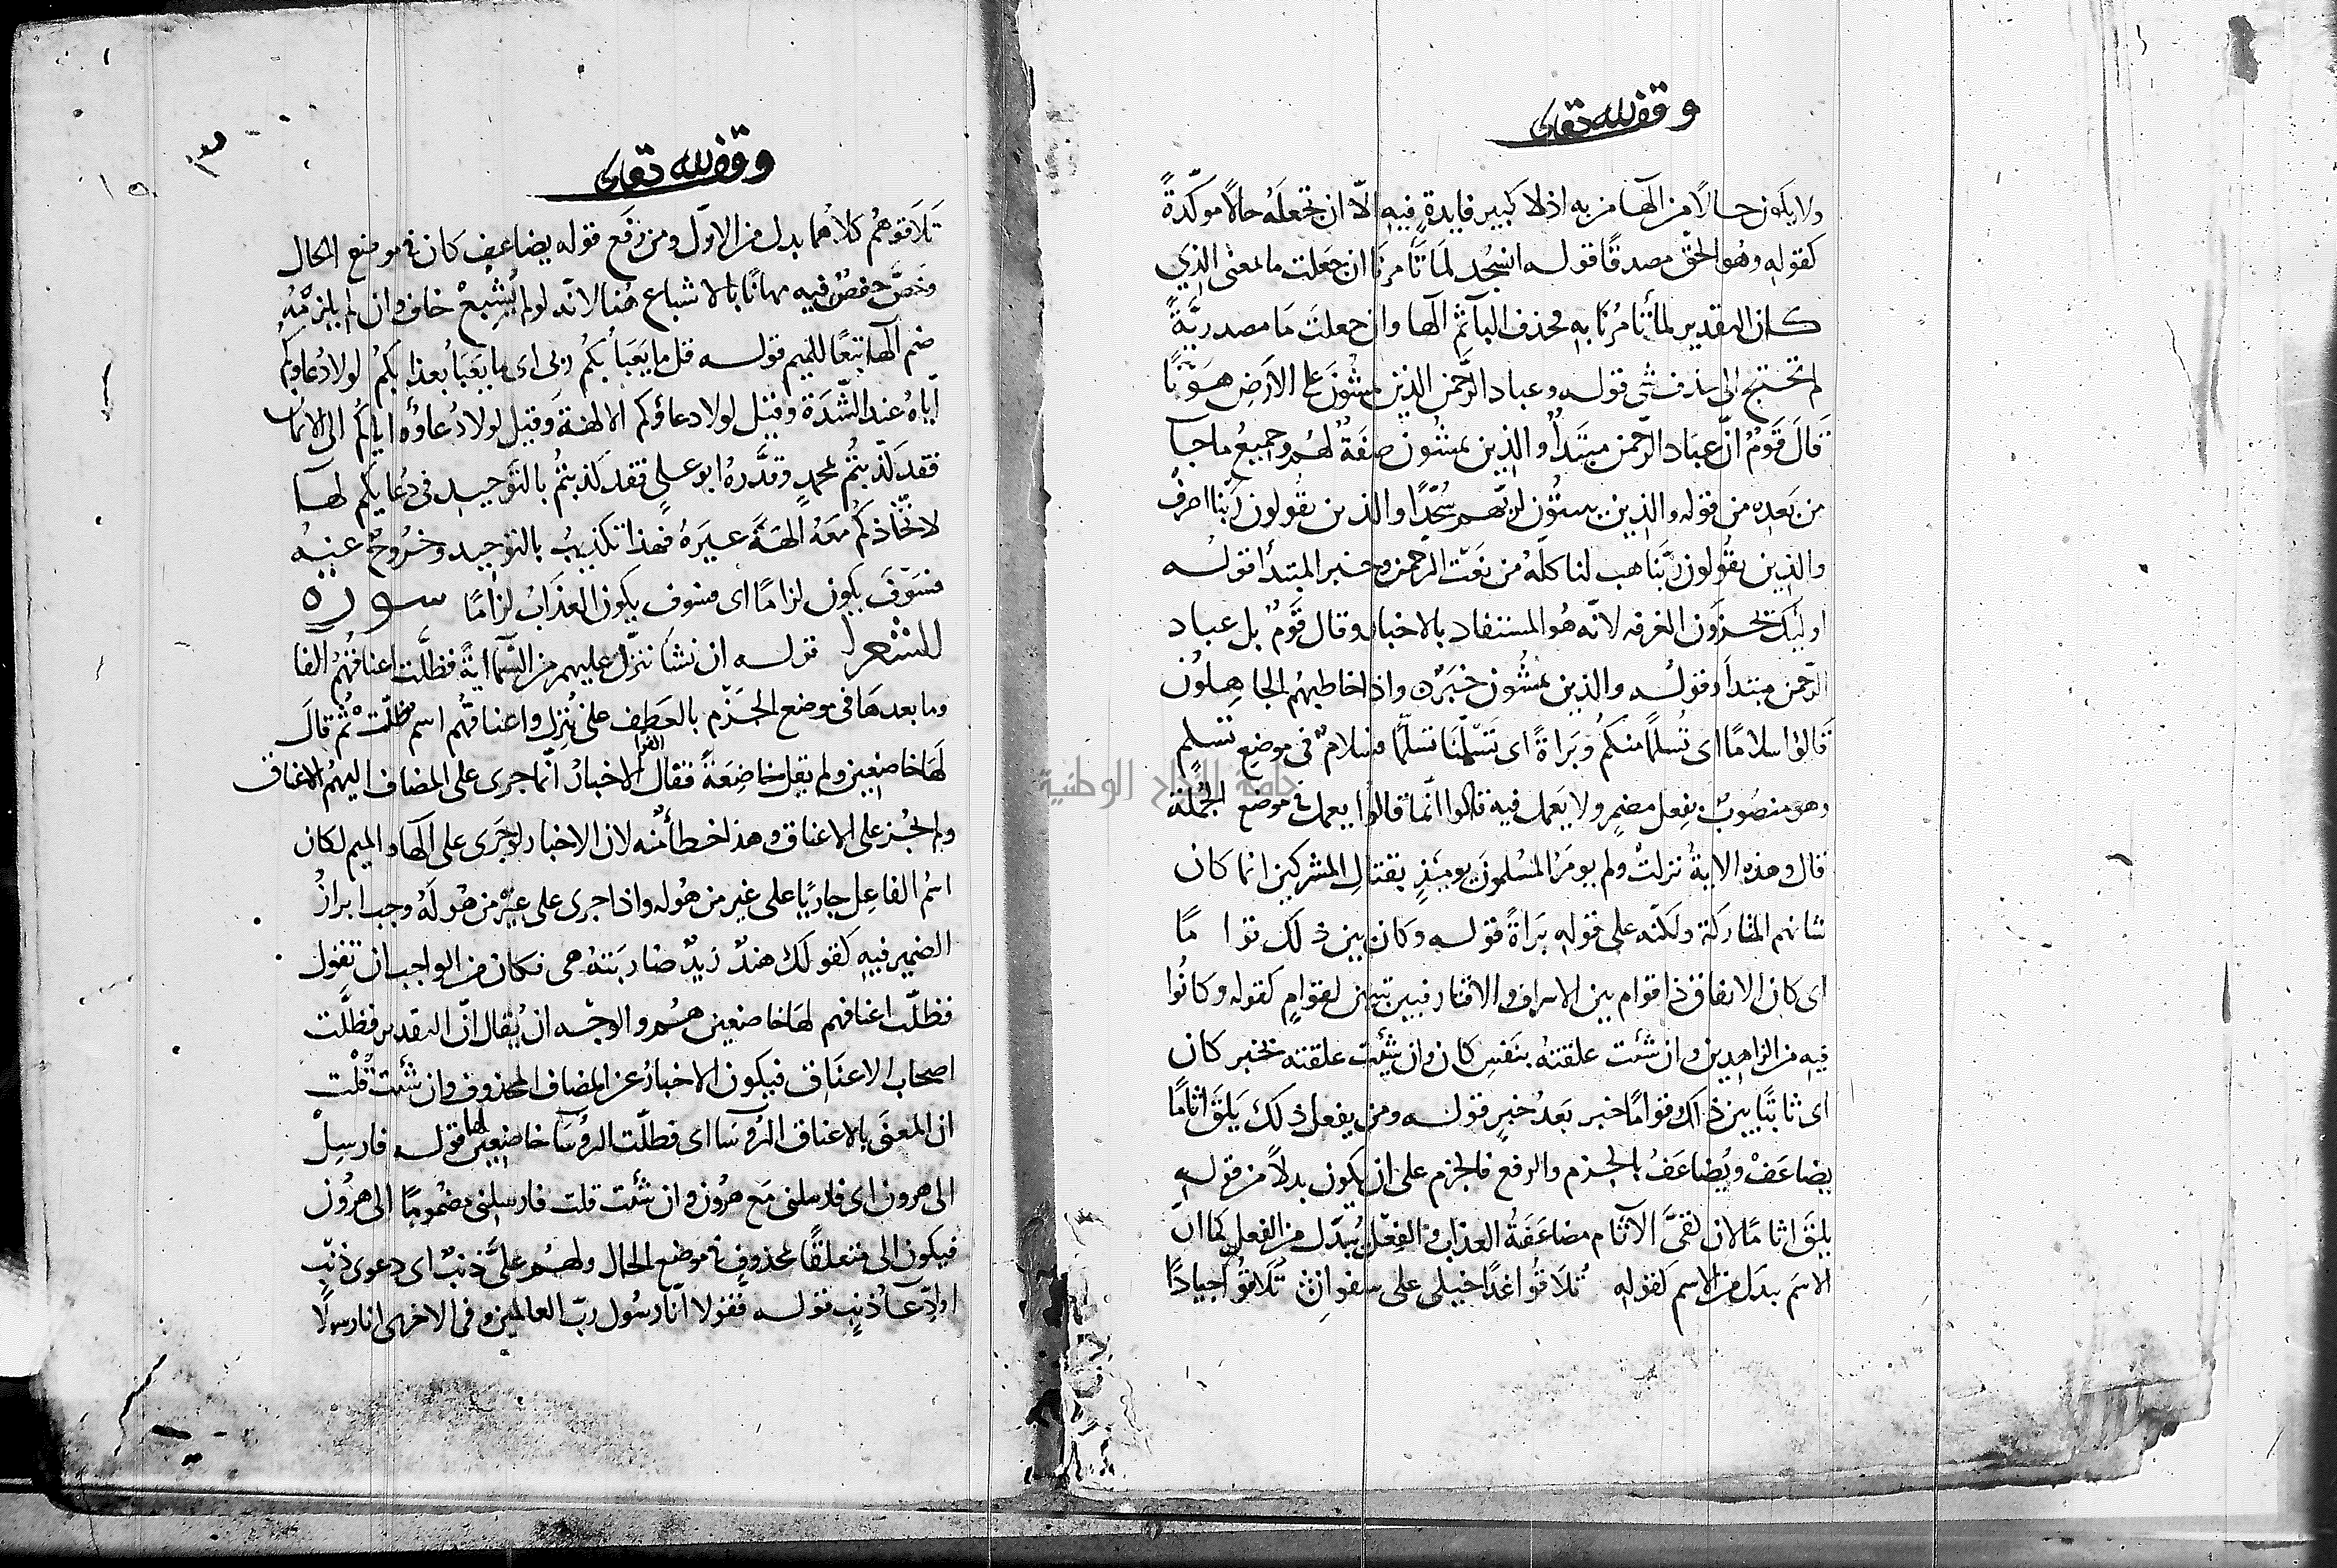 وقف لله تعالى
ولا يكون حالا من الهاء من به اذ لا كبير فايدة فيه الّا ان تجعله حالًا موكّدةً
كقوله وهو الحق مصدقًا قوله انسجد لما تأمرنا ان جعلت ما بمعنى الذي
كان التقدير لما تأمرنا به فحذف البآ ثم الها وان جعلت ما مصدريّةً
لم تحتج الى حذف شي قوله وعباد الرّحمن الذين يمشون على الارض هونًا
قال قومٌ انّ عباد الرّحمن مبتدأٌ والذين يمشون صفةٌ لهم وجميع ما جآ
من بعده من قوله والذين يبيتون لربّهم سُجّدًا والذين يقولون ربّنا اصرف
والذين يقولون ربّنا هب لنا كلّه من نعت الرحمن وخبر المبتدأ قوله
اوليك يجزون الغرفه لانّه هو المستفاد بالاخبار وقال قومٌ بل عباد
الرّحمن مبتدأ وقوله والذين يمشون خبره واذا خاطبهم الجاهلون
قالوا سلامًا اى تسلمًا منكم وبراةً اى تسلّمنا تسلّما فسلامٌ فى موضع تسلم
وهو منصوبٌ بفعل مضمر ولا يعمل فيه قالوا انّما قالوا يعمل في موضع الجملة
قال وهذه الاية نزلت ولم يومر المسلمون يوميذٍ بقتال المشركين انما كان
شانهم المتاركة ولكنّه على قوله براةً قوله وكان بين ذلك قواما
اى كان الانفاق ذا قوام بين الاسراف والاقتار فبين تبيين لقوامٍ كقوله وكانوا
فيه من الزاهدين وان شئت علقته بنفس كان وان شئت علقته بخبر كان
اى ثابتًا بين ذلك وقوامًا خبر بعد خبرٍ قوله ومن يفعل ذلك يلق اثامًا
يضاعفْ ويُضاعفُ بالجزم والرفع فالجزم على ان يكون بدلًا من قوله
يلق اثامًا لان لقىّ الآثام مضاعفة العذاب والفعل يُبدل من الفعل كما انّ
الاسم يبدل من الاسم كقوله تُلاقُوا غدًا خيلى على سفوان تُلاقُوا جيادًا
وقف لله تعالى
تلاقوهم كلاهما بدل من الاوّل ومن رفع قوله يضاعف كان فى موضع الحال
وخصّ حفصٌ فيه مهانًا بالاشباع هنا لانّه لو لم يُشبعْ خاف وان لم يلزمه
ضم الهآ تبعًا للميم قوله قل ما يعبأ بكم ربى اى ما يعبأ بعذابكم لولا دُعاوكم
ايّاه عند الشّدة وقيل لولا دعاؤكم الالهة وقيل لولا دُعاوُه اياكم الى الايمان
فقد كذّبتُم بمحمدٍ وقدّره ابو علي فقد كذبتُم بالتوحيد فى دُعايكم لها
لاتّخاذكم معه الهةً غيره فهذا تكذيبٌ بالتوحيد وخروجٌ عنه
فسوفَ يكون لزامًا اى فسوف يكون العذابُ لزامًا سورة
الشعرا قوله ان نشأ ننزّل عليهم من السّما ايةً فظلّت اعناقُهم الفا
وما بعدها فى موضع الجزم بالعطف على ننزل واعناقُهم اسم ظلّت ثم قال
لها خاضعين ولم يقل خاضعةً فقال الفرا الاخبار انّما جرى على المضاف اليهم الاعناق
ولم يجز على الاعناق وهذا خطأٌ منه لان الاخبار لو جرى على الها والميم لكان
اسم الفاعِل جاريًا على غير من هو له واذا جرى على غير من هو له وجب ابرازُ
الضمير فيه كقولك هندٌ زيدٌ ضاربته هى فكان من الواجب ان تقول
فظلّت اعناقهم لها خاضعين هم والوجه ان يُقال انّ التقدير فظلّت
اصحاب الاعناق فيكون الاخبارُ عن المضاف المحذوف وان شئت قلت
ان المعنى بالاعناق الرؤسا اى فظلّت الرؤسا خاضعين لها قوله فارسلْ
الى هرون اى فارسلنى مع هرون وان شئت قلت فارسلنى مضمومًا الى هرون
فيكون الى متعلقًا بمحذوفٍ في موضع الحال ولهم علىّ ذنبٌ اى دعوى ذنبٍ
او ادّعآ ذنبٍ قوله فقولا انّا رسول ربّ العالمين وفى الاخرى انا رسولا
جامعة النجاح الوطنية